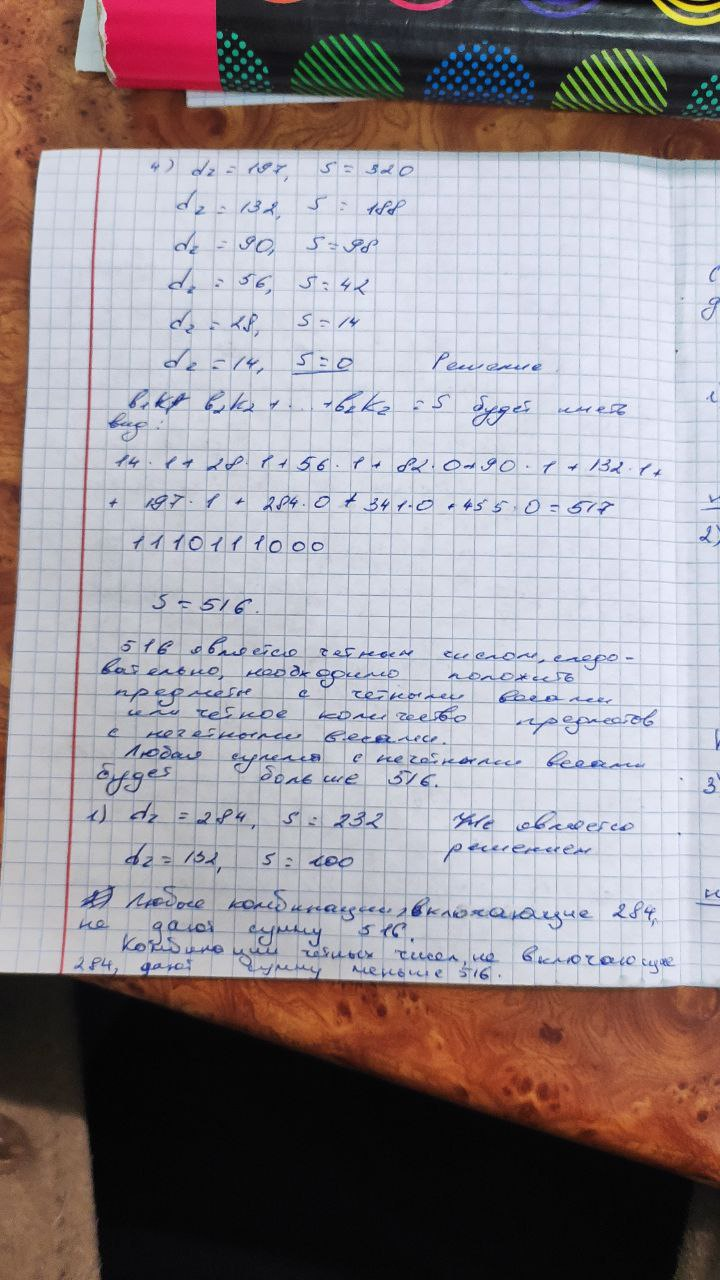 4) dz = 197, S = 320
dz = 132, S = 188
dz = 90, S = 98
dz = 56, S = 42
dz = 28, S = 14
dz = 14, S = 0 Решение
b₁k₁ b₂k₂ + ... + bzkz = S будет иметь
вид:
14·1 + 28·1 + 56·1 + 82·0 + 90·1 + 132·1 +
+ 197·1 + 284·0 + 341·0 + 455·0 = 517
1110111000
S = 516.
516 является четным числом, следо-
вательно, необходимо положить
предметы с четными весами
или четное количество предметов
с нечетными весами.
Любая сумма с нечётными весами
будет больше 516.
1) dz = 284, S = 232 Не является
решением
dz = 132, S = 100
Любые комбинации, включающие 284,
не дают сумму 516.
Комбинации четных чисел, не включающие
284, дают сумму меньше 516.
2)
3